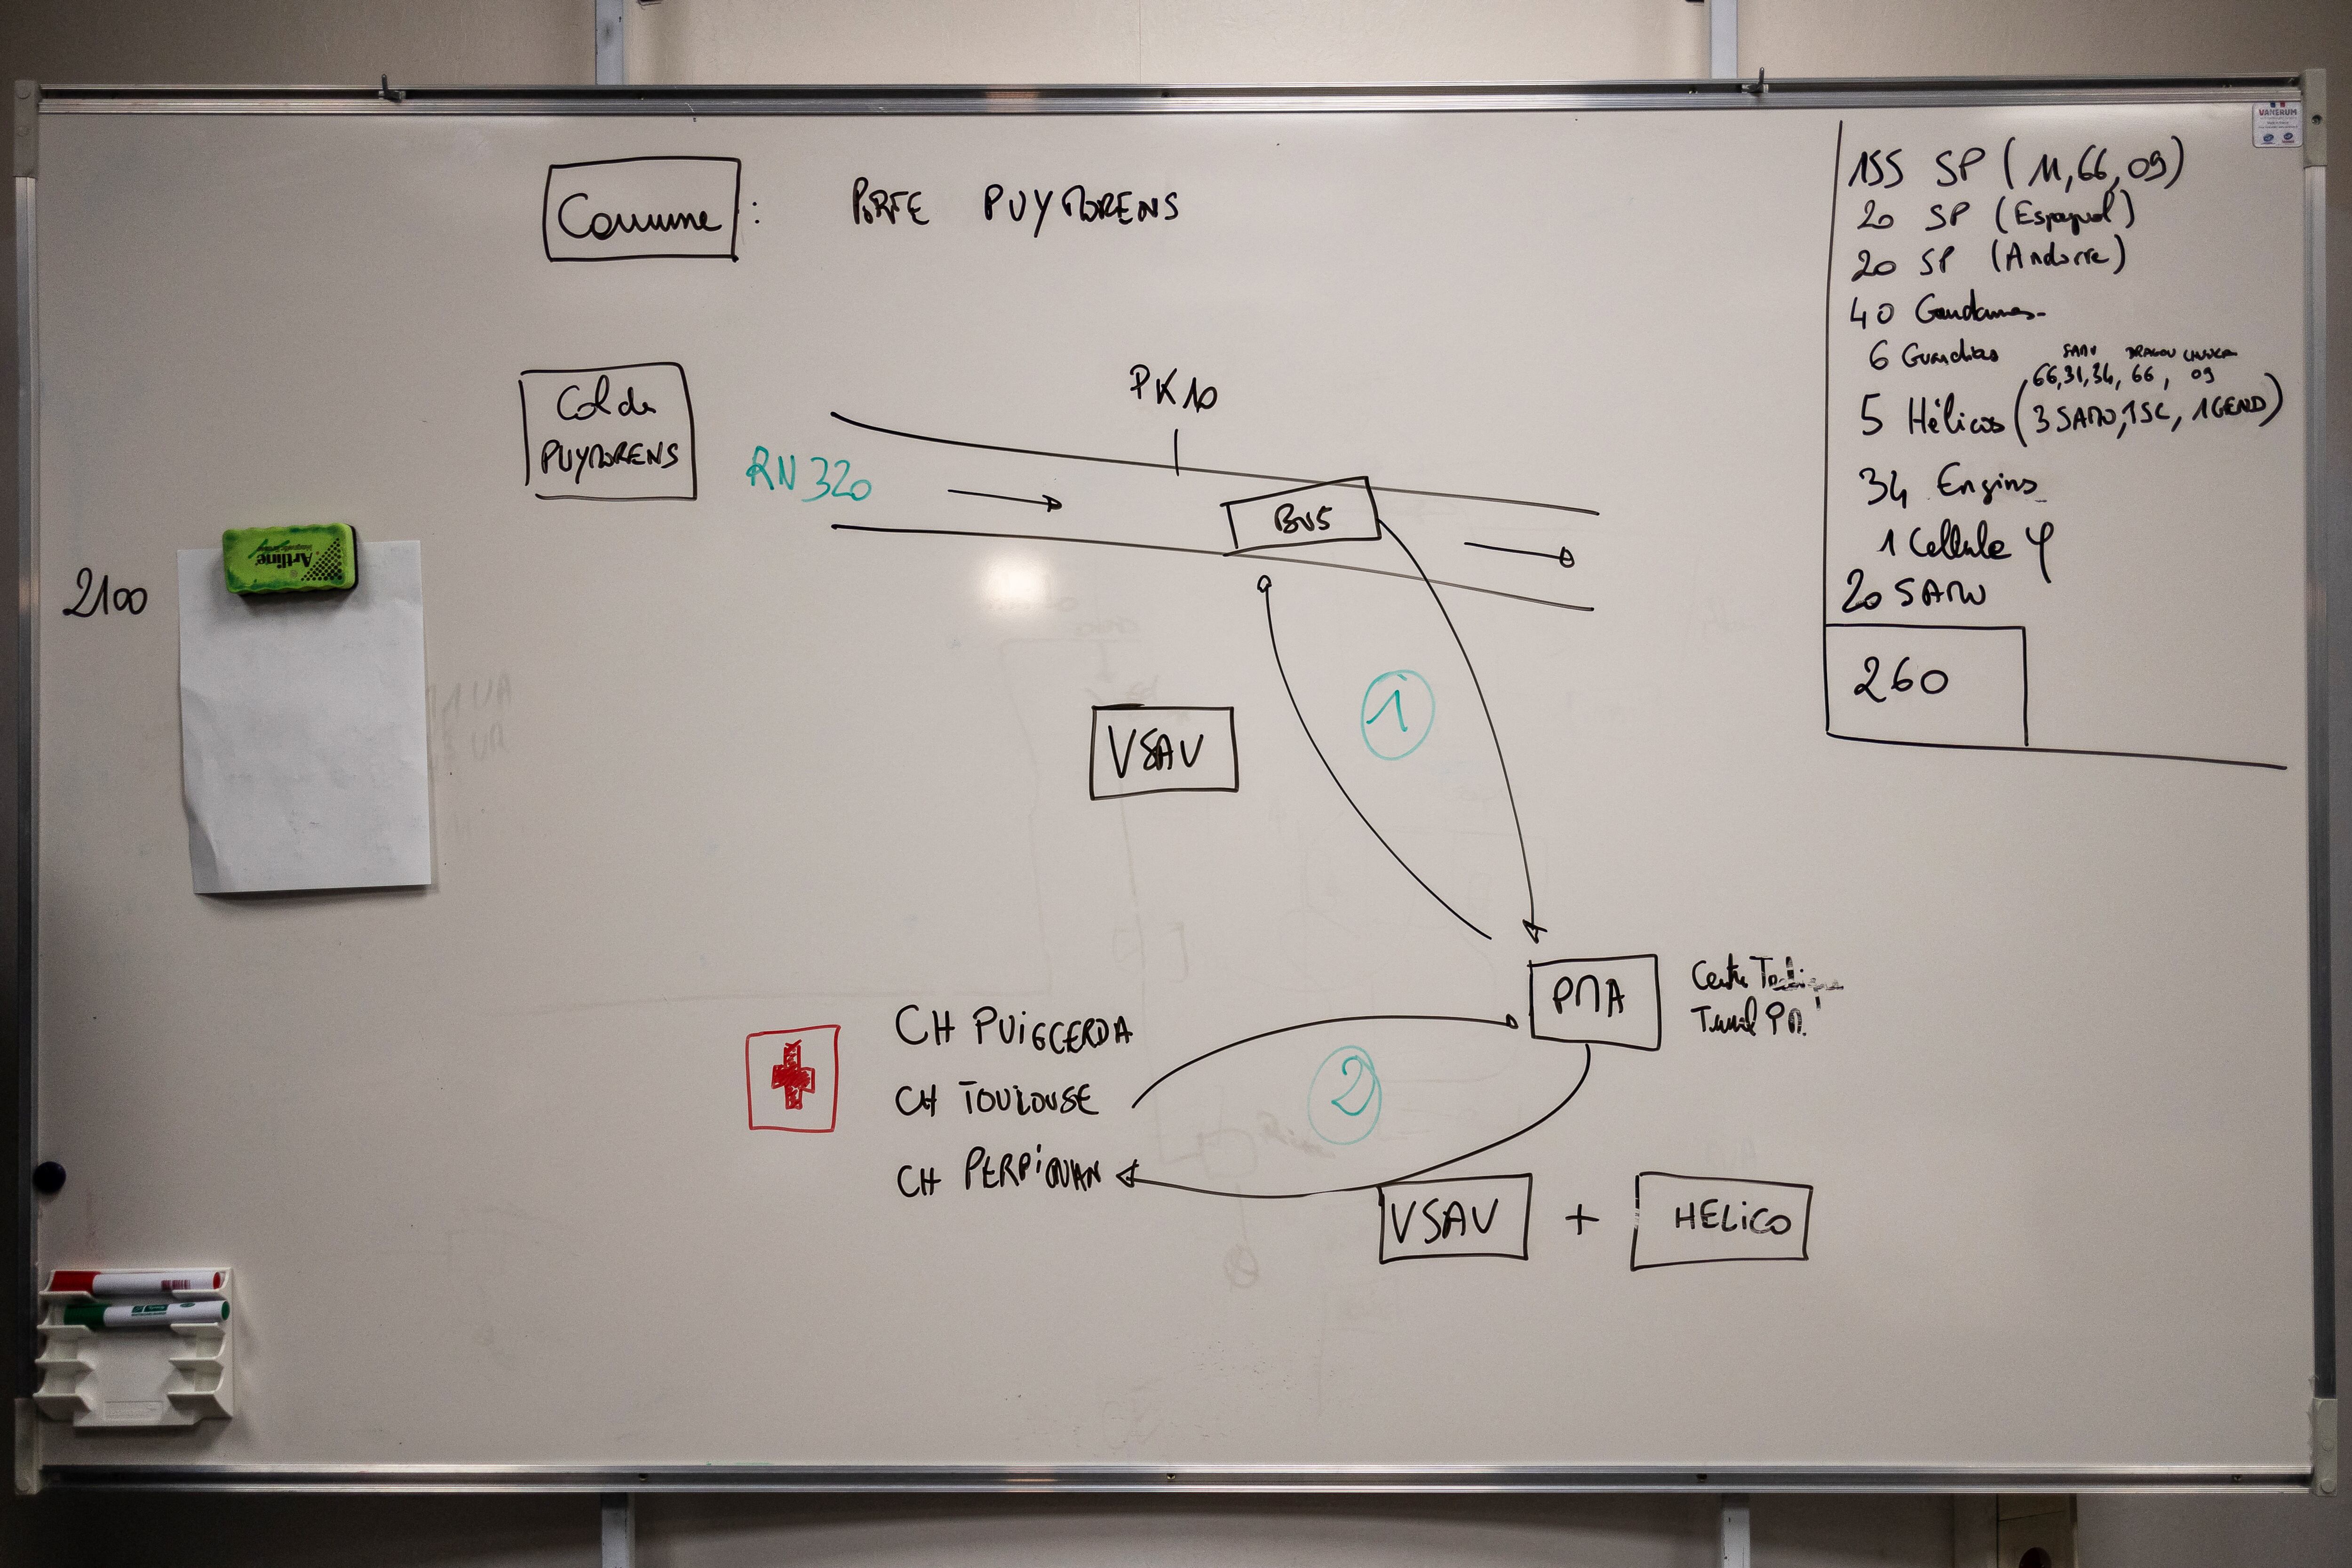 Commune : PORTE PUYMORENS
Col de
PUYMORENS
RN 320
PK 10
BUS
2100
Artline
VSAV
1
PMA
Centre Technique
Tunnel PM.
CH PUIGCERDA
CH TOULOUSE
CH PERPIGNAN
2
VSAV + HELICO
155 SP (11, 66, 09)
20 SP (Espagnol)
20 SP (Andorre)
40 Gendarmes
6 Guardias
SAMU DRAGON
66, 31, 34, 66, 09
5 Hélicos (3 SAMU, 1SC, 1GEND)
34 Engins
1 Cellule φ
20 SAMU
260
VANERUM